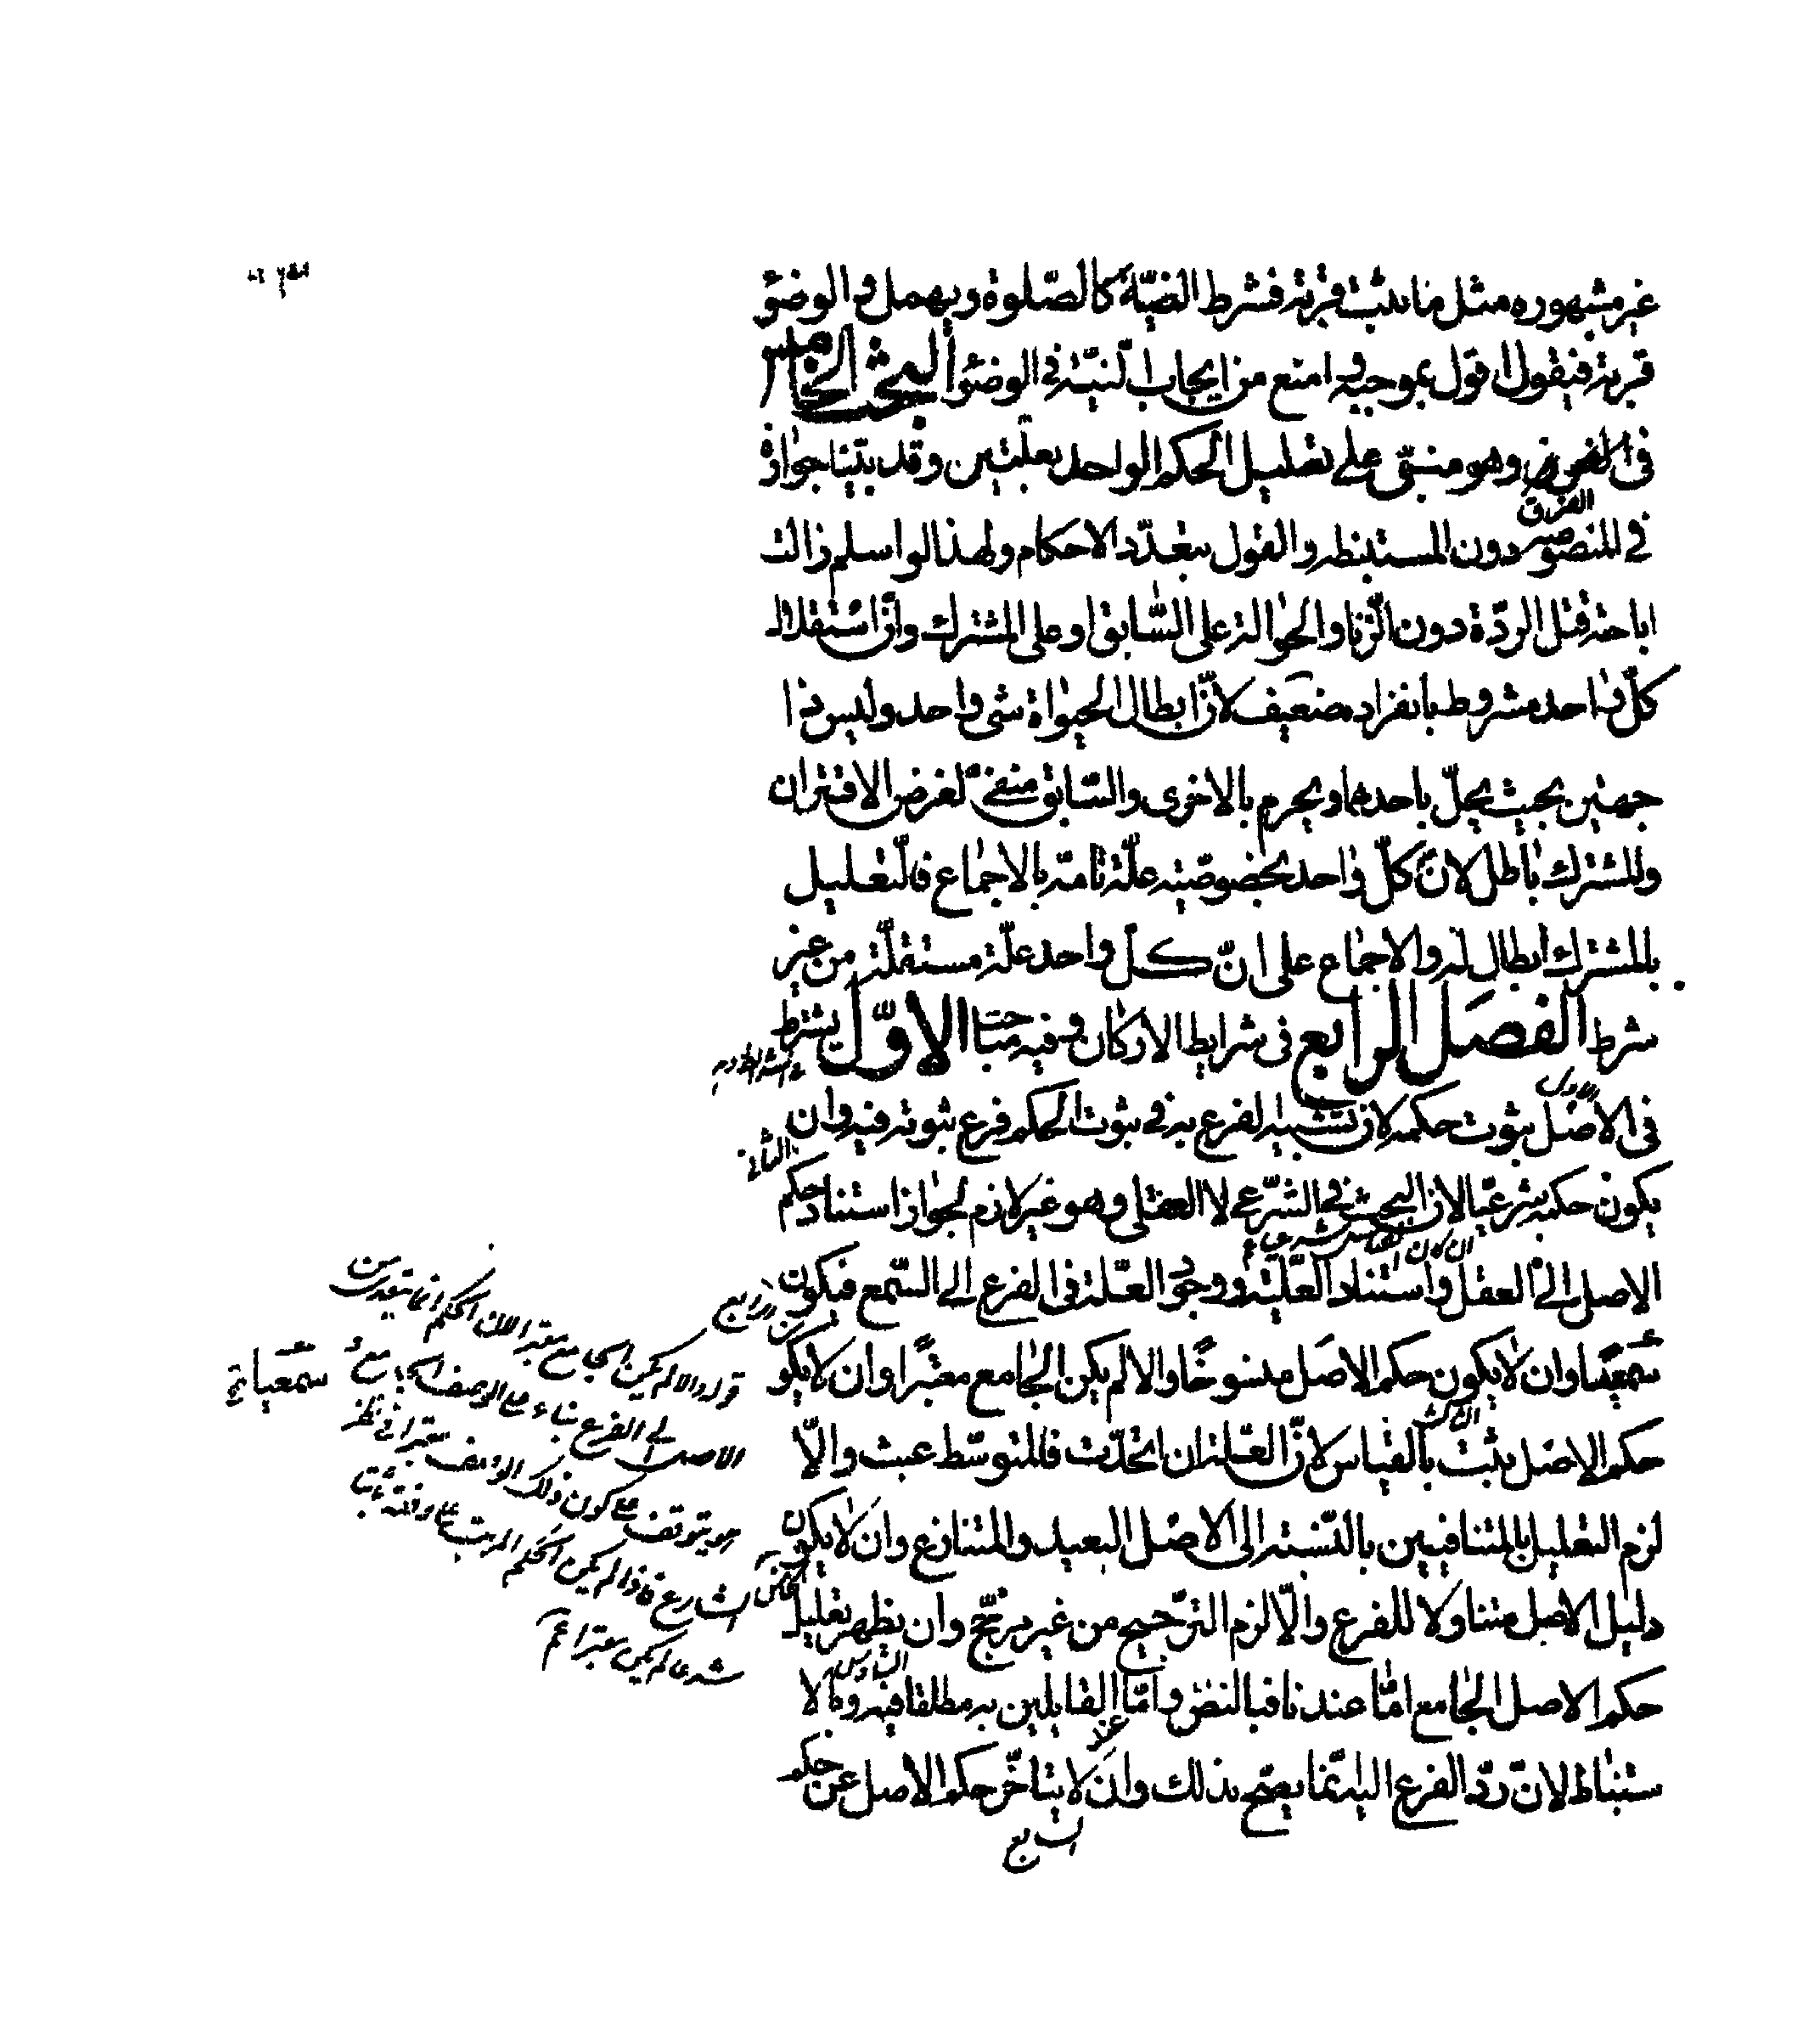 غير مشهوره مثل ما يثبت قربة فشرط النيّة كالصّلوة ويهمل والوضؤ
قربة فيقول اقول بموجبه وامنع من ايجاب النيّة في الوضؤ البحث الخامس
في الفرق وهو مبنيّ على تعليل الحكم الواحد بعلّتين وقد بيّنا جوازه
الفرق
في المنصوصه دون المستنبطه والقول بتعدّد الاحكام ولهذا لو اسلم زالت
اباحة قتل الردّة دون الزّنا والحوالة على السّابق او على المشترك وانّ استقلال
كلّ واحد مشروط بانفراده ضعيف لانّ ابطال الحيوٰة شئ واحد وليس ذا
جهتين بحيث يحلّ باحدهما ويحرم بالاخرى والسّابق منفىّ لفرض الاقتران
والمشترك باطل لانّ كلّ واحد بخصوصيّته علّة تامّة بالاجماع فالتّعليل
بالمشترك ابطال له والاجماع على انّ كلّ واحد علّة مستقلّة من غير
شرط الفصل الرابع في شرايط الاركان وفيه مباحث الاوّل يشترط
الاول
في الاصل ثبوت حكمه لانّ تشبيه الفرع به في ثبوت الحكم فرع ثبوته فيه وان
الثاني
يكون حكمه شرعيّا لانّ البحث في الشّرعي لا العقلى وهو غير لازم لجواز استناد حكم
الاصل الى العقل واستناد العلّيّة ووجود العلّة في الفرع الى السّمع فيكون
الرابع
سمعيّا وان لا يكون حكم الاصل منسوخًا والا لم يكن الجامع معتبرًا وان لا يكو
الثالث
حكم الاصل يثبت بالقياس لانّ العلّة ان اتّحدت فالمتوسّط عبث والّا
لزم التعليل بالمتنافيين بالنّسبة الى الاصل البعيد والمتنازع وان لا يكون
الخامس
دليل الاصل متناولا للفرع والّا لزم التّرجيح من غير مرجّح وان يظهر تعليل
السادس
حكم الاصل الجامع امّا عندنا فبالنص وامّا عند القايلين به مطلقا فبه وبالا
ستنباط لانّ ردّ الفرع اليه انّما يصحّ بذلك وان لا يتاخّر حكم الاصل عن حكم
السابع
قوله والا لم يكن الجامع معتبرا لان الحكم انما يتعدى من
الاصل الى الفرع بناء على الوصف الجامع
هو يتوقف على كون ذلك الوصف معتبرا في نظر
الشارع فاذا لم يكن الحكم المرتب على وفقه ثابتا
شرعا لم يكن معتبرا